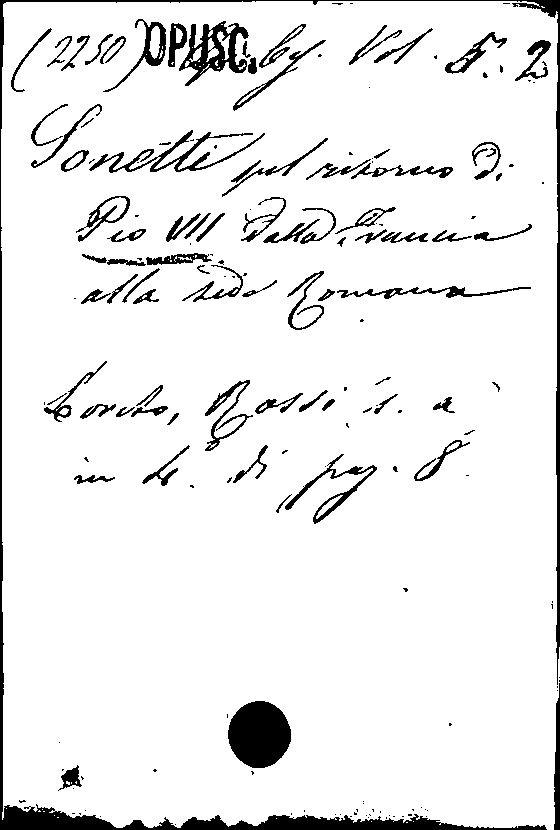 (2250) OPUSC. Vol. 5. 2
Sonetti pel ritorno di
Pio VII dalla Francia
alla sede Romana
Loreto, Rossi s. a
in 4.° di pag. 8